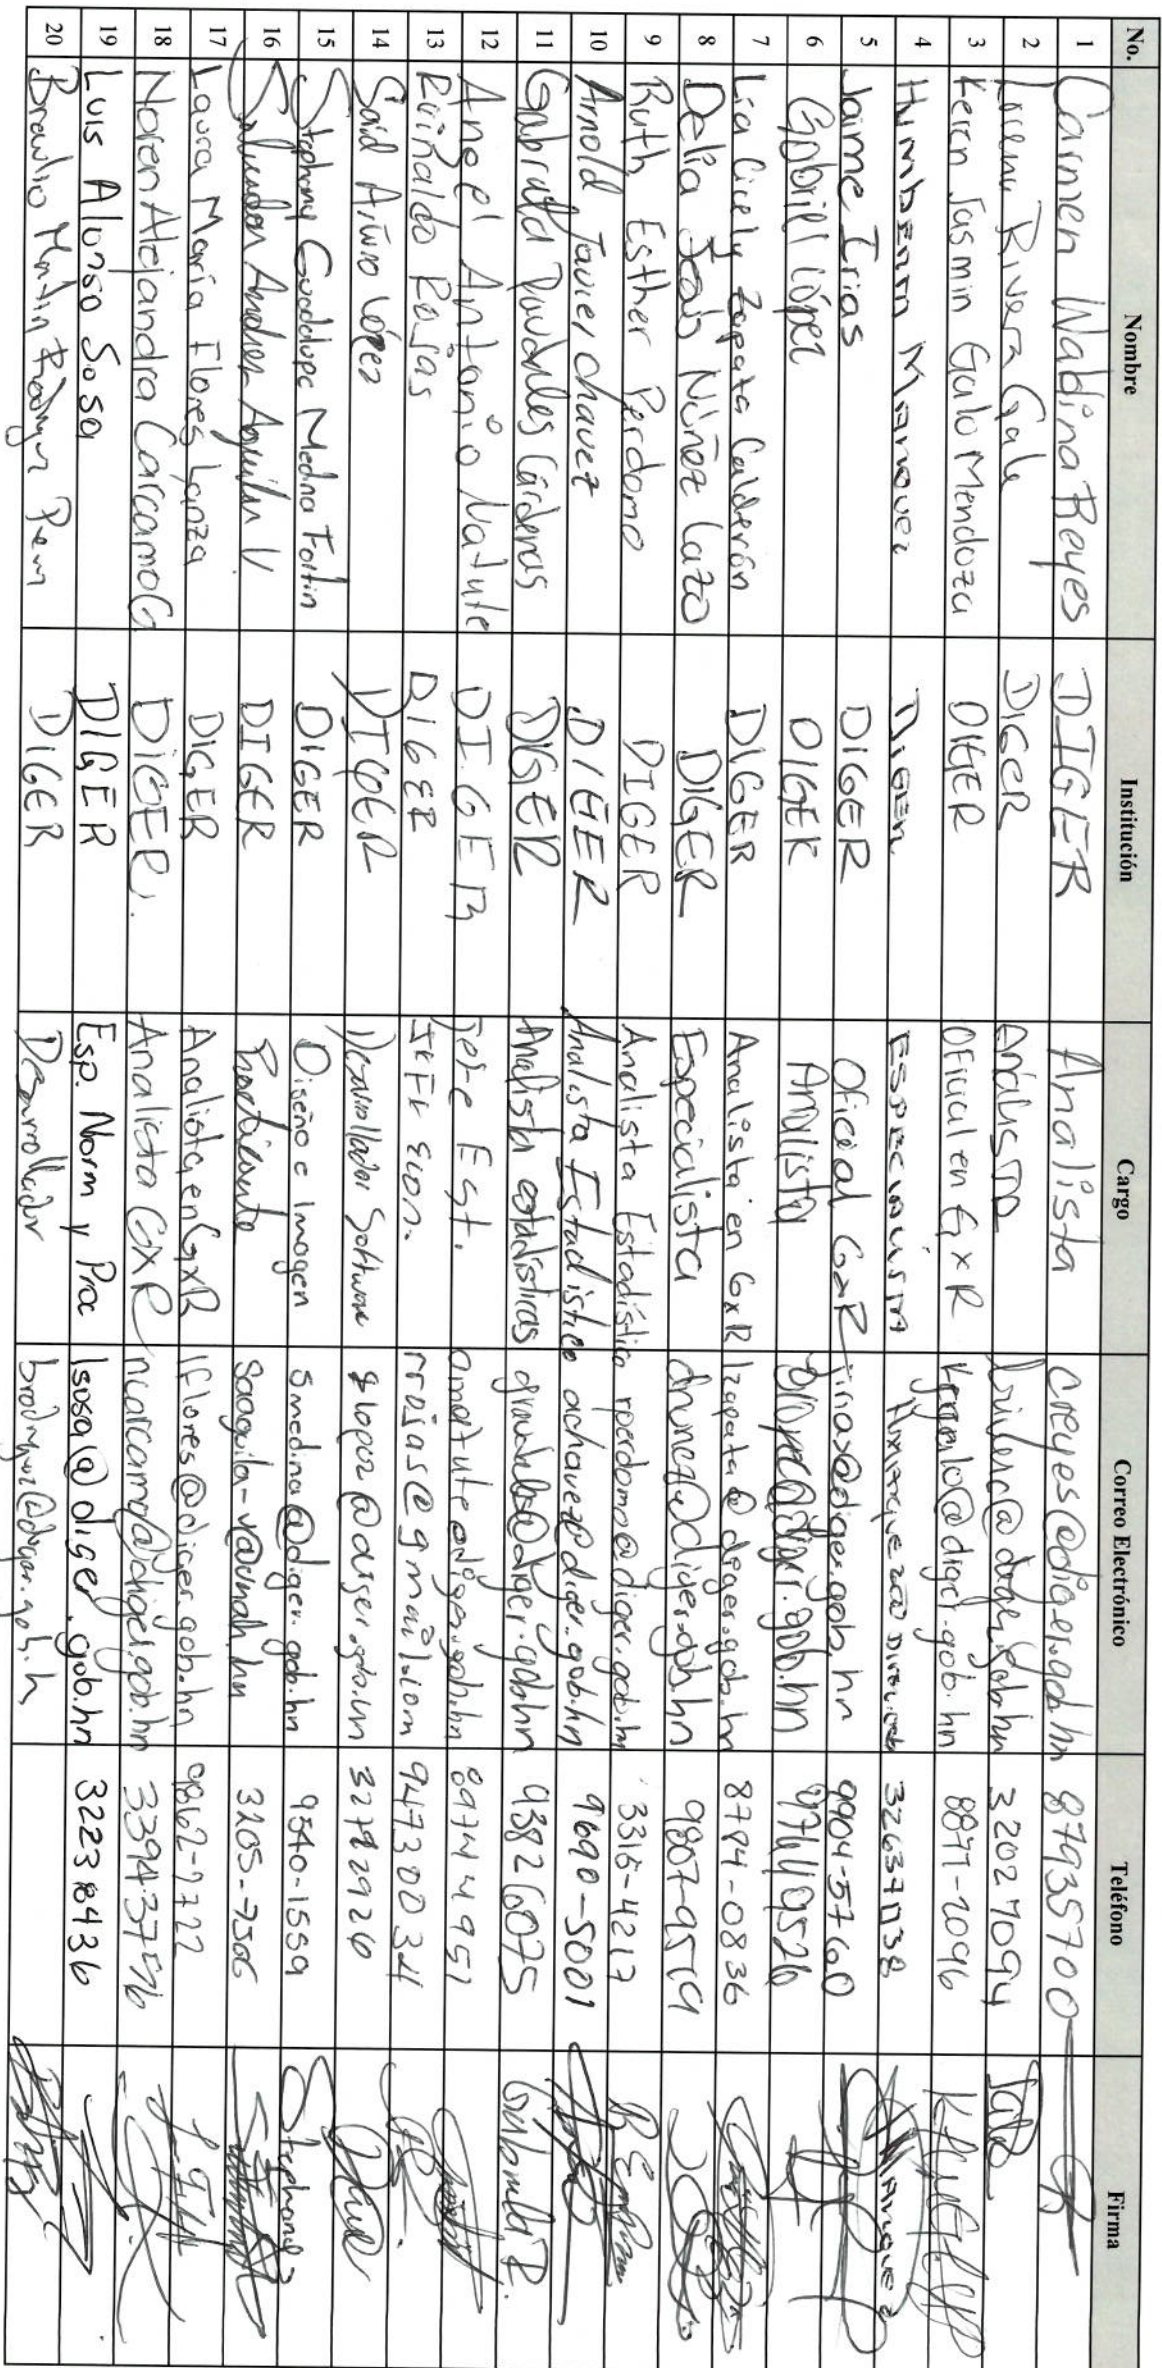 No. Nombre Institución Cargo Correo Electrónico Teléfono Firma
1 Carmen Waldina Reyes DIGER Analista creyes@diger.gob.hn 87935700
2 Lorena Rivera Gale DIGER Analista lrivera@diger.gob.hn 32027094
3 Keren Jasmin Galo Mendoza DIGER Oficial en GxR kgalo@diger.gob.hn 8877-2096
4 Humberto Marquez DIGER Especialista
5 Jaime Irias DIGER Oficial GxR jirias@diger.gob.hn 9904-5760
6 Gabriel López DIGER Analista
7 Lia Cicely Zapata Calderón DIGER Analista en GxR lzapata@diger.gob.hn 8784-0836
8 Delia Núñez Lazo DIGER Especialista dnunez@diger.gob.hn 9807-9519
9 Ruth Esther Perdomo DIGER Analista Estadístico rperdomo@diger.gob.hn 3316-4217
10 Arnold Javier chavez DIGER Analista Estadistico achavez@diger.gob.hn 9690-5001
11 Gabriella Raudales Cárdenas DIGER Analista estadísticas graudales@diger.gob.hn 93826075
12 Angel Antonio Matute DIGER Jefe Est. amatute@diger.gob.hn 89744951
13 Reinaldo Rojas DIGER Jefe econ. rrojasc@gmail.com 94730034
14 Said Arturo López DIGER Desarrollador Software slopez@diger.gob.hn
15 Stephany Guadalupe Medina Fortin DIGER Diseño e Imagen smedina@diger.gob.hn 9540-1559
16 Salvador Andres Aguilar V DIGER Practicante 3205-7506
17 Laura María Flores Lanza DIGER Analista en GxR lflores@diger.gob.hn 9862-7722
18 Noren Alejandra Carcamo G DIGER. Analista GXR ncarcamo@diger.gob.hn
19 Luis Alonso Sosa DIGER Esp. Norm y Proc lsosa@diger.gob.hn 32238436
20 Braulio Martin Rodriguez DIGER Desarrollador